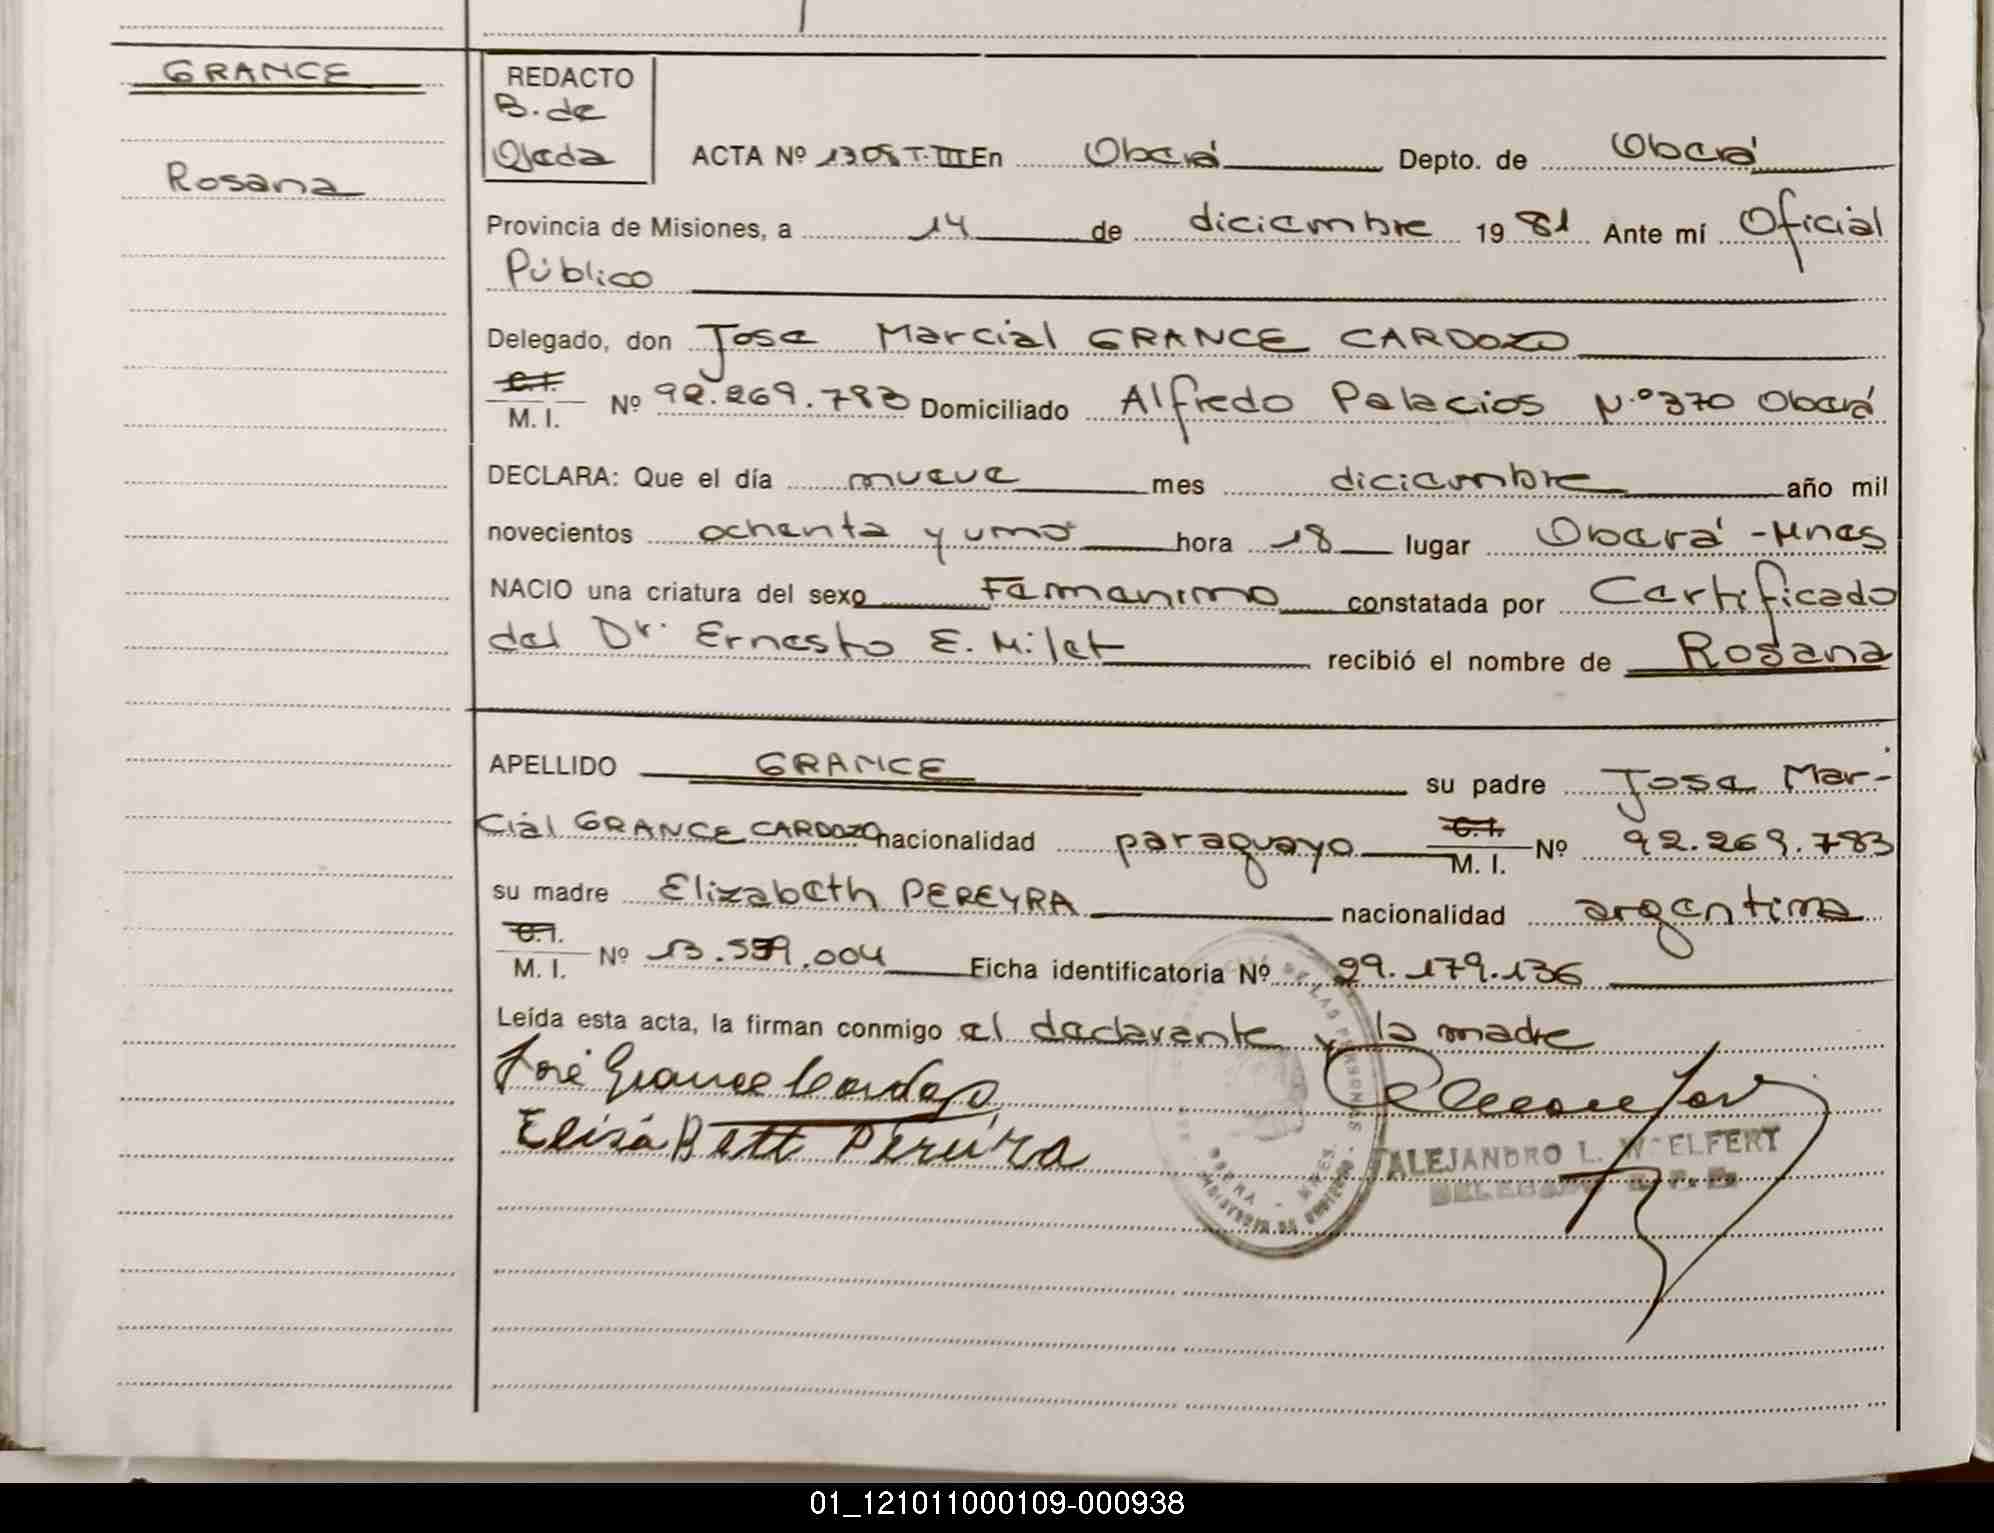 GRANCE
Rosana
REDACTO
B. de
Ojeda
ACTA Nº 1308 T. III En Oberá Depto. de Oberá
Provincia de Misiones, a 14 de diciembre 1981 Ante mí Oficial
Público
Delegado, don Jose Marcial GRANCE CARDOZO
C.I.
M. I. Nº 92.269.783 Domiciliado Alfredo Palacios N.º 370 Oberá
DECLARA: Que el día nueve mes diciembre año mil
novecientos ochenta y uno hora 18 lugar Oberá - Mnes
NACIO una criatura del sexo Femenino constatada por Certificado
del Dr. Ernesto E. Milet recibió el nombre de Rosana
APELLIDO GRANCE su padre Jose Mar-
cial GRANCE CARDOZO nacionalidad paraguayo C.I. M. I. Nº 92.269.783
su madre Elizabeth PEREYRA nacionalidad argentina
C.I.
M. I. Nº 13.559.004 Ficha identificatoria Nº 29.179.136
Leída esta acta, la firman conmigo el declarante y la madre
José Grance Cardozo
ElisáBett Pereira
DE LAS PERSONAS
OBERA - MNES.
MINISTERIO DE GOBIERNO
ALEJANDRO L. WELFERT
DELEGADO
01_121011000109-000938